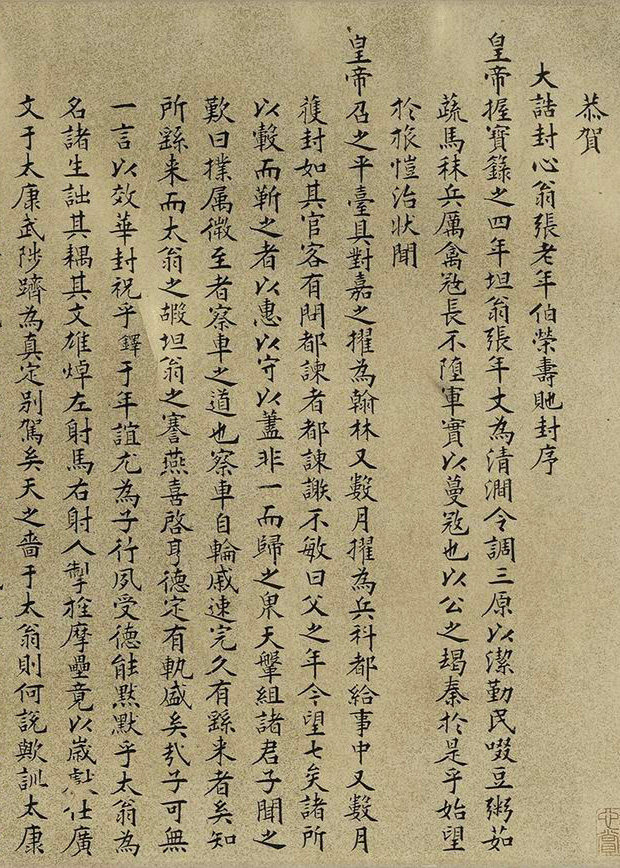 恭賀
大誥封心翁張老年伯榮壽貤封序
皇帝握寶錄之四年坦翁張年丈為清澗令調三原以潔勤民啜豆粥茹
蔬馬秣兵厲禽寇長不墮軍實以蔓寇也以公之竭秦於是乎始望
於旅愷治狀聞
皇帝召之平臺具對嘉之擢為翰林又數月擢為兵科都給事中又數月
獲封如其官客有問都諫者都諫謝不敏曰父之年今望七矣諸所
以轂而靳之者以惠以守以藎非一而歸之果天鞶組諸君子聞之
歎曰樸属微至者察車之道也察車自輪戚速完久有繇来者矣知
所繇来而太翁之嘏坦翁之謇燕喜啓亨德定有軌盛矣𢦏子可無
一言以效華封祝乎鐸于年誼尤為子行夙受德能黙默乎太翁為
名諸生詘其耦其文雄焯左射馬右射人掣拴摩壘竟以歲献仕廣
文于太康武陟躋為真定別駕矣天之嗇于太翁則何說歟訓太康